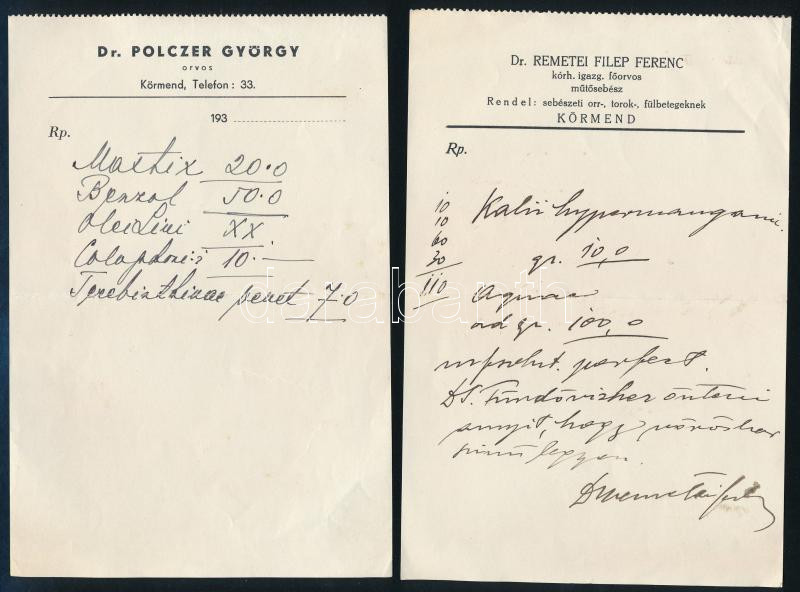 Dr. POLCZER GYÖRGY
orvos
Körmend, Telefon: 33.
193
Rp.
Mastix 20.0
Benzol 50.0
Olei Lini XX
Colophonii 10.—
Terebinthinae venet 7.0
Dr. REMETEI FILEP FERENC
kórh. igazg. főorvos
műtősebész
Rendel: sebészeti orr-, torok-, fülbetegeknek
KÖRMEND
Rp.
10
10
60
30
110
Kalii hypermanganic.
gr. 10,0
Aquae
ad gr. 100,0
perfect.
DS. Fürdővízhez önteni
annyit, hogy vörösbor
színű legyen.
darabanth